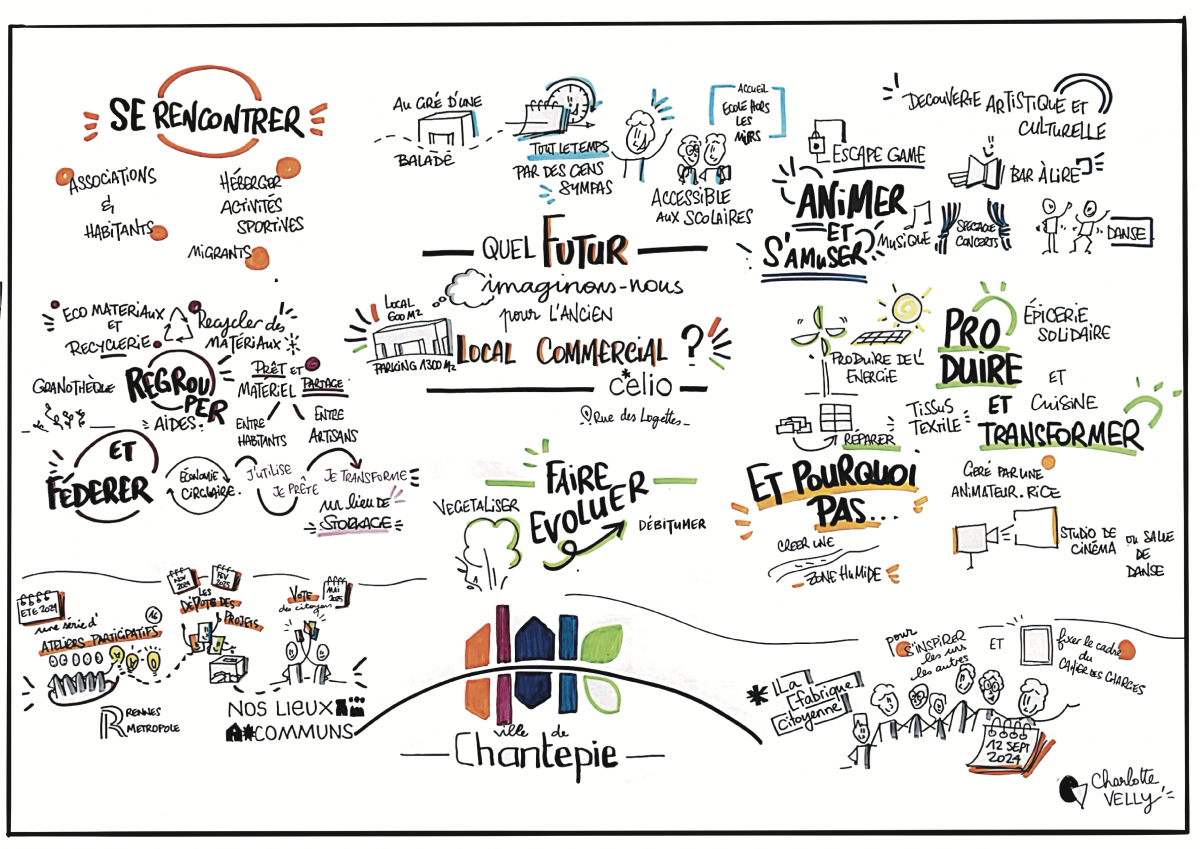 SE RENCONTRER
ASSOCIATIONS
&
HABITANTS
HÉBERGER
ACTIVITÉS
SPORTIVES
MIGRANTS
AU GRÉ D'UNE
BALADE
TOUT LE TEMPS
PAR DES GENS
SYMPAS
ACCUEIL
ECOLE HORS
LES
MURS
ACCESSIBLE
AUX SCOLAIRES
DECOUVERTE ARTISTIQUE ET
CULTURELLE
ESCAPE GAME
BAR À LIRE
ANIMER
ET
S'AMUSER
MUSIQUE
SPECTACLE
CONCERTS
DANSE
QUEL FUTUR
imaginons-nous
pour L'ANCIEN
LOCAL COMMERCIAL ?
celio
Rue des Logettes
LOCAL
600 M2
PARKING 1300 M2
ECO MATERIAUX
ET
RECYCLERIE
Recycler des
MATÉRIAUX
GRANOTHÈQUE
REGROU
PER
AIDES
PRÊT ET
MATERIEL PARTAGE
ENTRE
HABITANTS
ENTRE
ARTISANS
ET
FÉDERER
ÉCONOMIE
CIRCULAIRE
J'UTILISE
JE PRÊTE
JE TRANSFORME
un lieu de
STOCKAGE
PRODUIRE DE L'
ENERGIE
PRO
DUIRE
ÉPICERIE
SOLIDAIRE
ET
ET CUISINE
TRANSFORMER
TISSUS
TEXTILE
RÉPARER
GERÉ PAR UNE
ANIMATEUR.RICE
STUDIO DE
CINÉMA
ou SALLE
DE
DANSE
FAIRE
EVOLUER
VEGETALISER
DÉBITUMER
ET POURQUOI
PAS...
CREER UNE
ZONE HUMIDE
ETE 2024
une série d'
ATELIERS PARTICIPATIFS
16
NOV
2024
FEV
2025
LES
DÉPÔTS DES
PROJETS
VOTE
des citoyens
MAI
2025
RENNES
METROPOLE
NOS LIEUX
COMMUNS
ville de
Chantepie
La
fabrique
citoyenne
pour
S'INSPIRER
les uns
les autres
ET
fixer le cadre
du
CAHIER DES CHARGES
12 SEPT
2024
Charlotte
VELLY